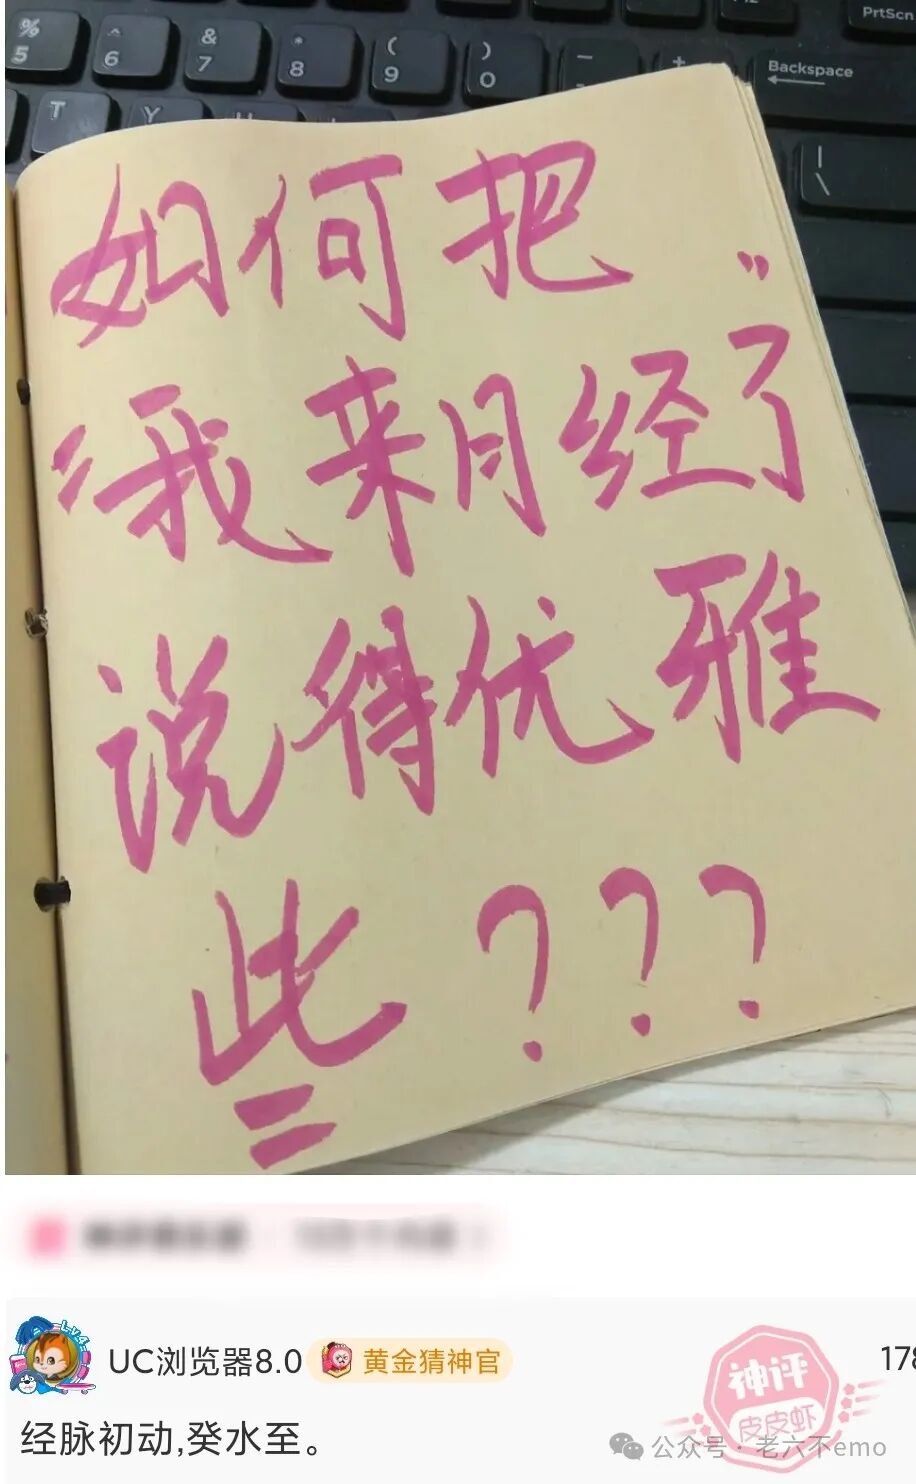 % 5
^ 6
& 7
* 8
( 9
) 0
PrtScn
Backspace
T Y U
| \
如何把
“我来月经了”
说得优雅
些???
UC浏览器8.0 黄金猜神官 178
经脉初动,癸水至。
神评
皮皮虾
公众号·老六不emo